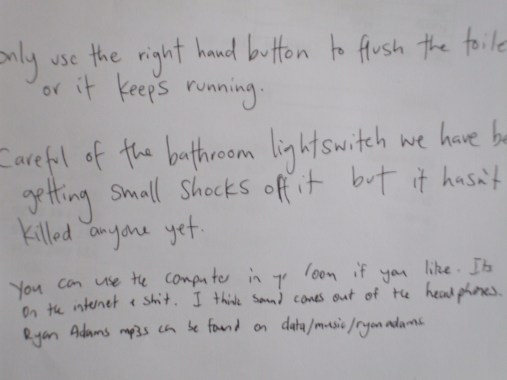 only use the right hand button to flush the toile
or it keeps running.
Careful of the bathroom lightswitch we have be
getting small shocks off it but it hasn't
killed anyone yet.
You can use the computer in yr room if you like. Its
on the internet & shit. I think sound comes out of the headphones.
Ryan Adams mp3s can be found on data/music/ryanadams